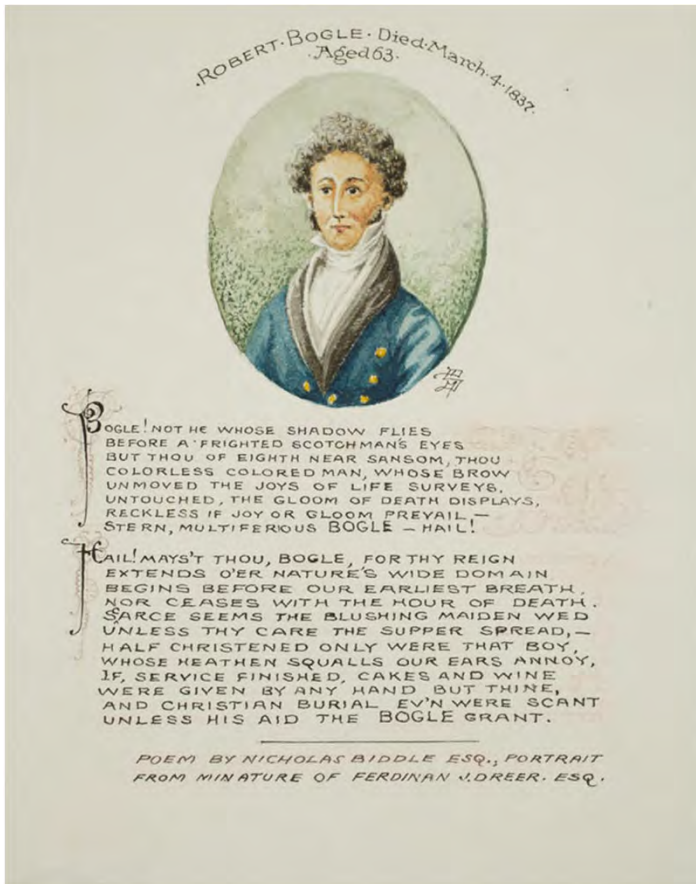 ·ROBERT·BOGLE· Died·March·4·1837·
·Aged 63·
BOGLE! NOT HE WHOSE SHADOW FLIES
BEFORE A·FRIGHTED SCOTCHMAN'S EYES
BUT THOU OF EIGHTH NEAR SANSOM, THOU
COLORLESS COLORED MAN, WHOSE BROW
UNMOVED THE JOYS OF LIFE SURVEYS,
UNTOUCHED, THE GLOOM OF DEATH DISPLAYS,
RECKLESS IF JOY OR GLOOM PREVAIL —
STERN, MULTIFERIOUS BOGLE — HAIL!
HAIL! MAYS'T THOU, BOGLE, FOR THY REIGN
EXTENDS O'ER NATURE'S WIDE DOMAIN
BEGINS BEFORE OUR EARLIEST BREATH,
NOR CEASES WITH THE HOUR OF DEATH.
SARCE SEEMS THE BLUSHING MAIDEN WED
UNLESS THY CARE THE SUPPER SPREAD, —
HALF CHRISTENED ONLY WERE THAT BOY,
WHOSE HEATHEN SQUALLS OUR EARS ANNOY,
IF, SERVICE FINISHED, CAKES AND WINE
WERE GIVEN BY ANY HAND BUT THINE,
AND CHRISTIAN BURIAL EV'N WERE SCANT
UNLESS HIS AID THE BOGLE GRANT.
POEM BY NICHOLAS BIDDLE ESQ., PORTRAIT
FROM MINATURE OF FERDINAN J. DREER. ESQ.